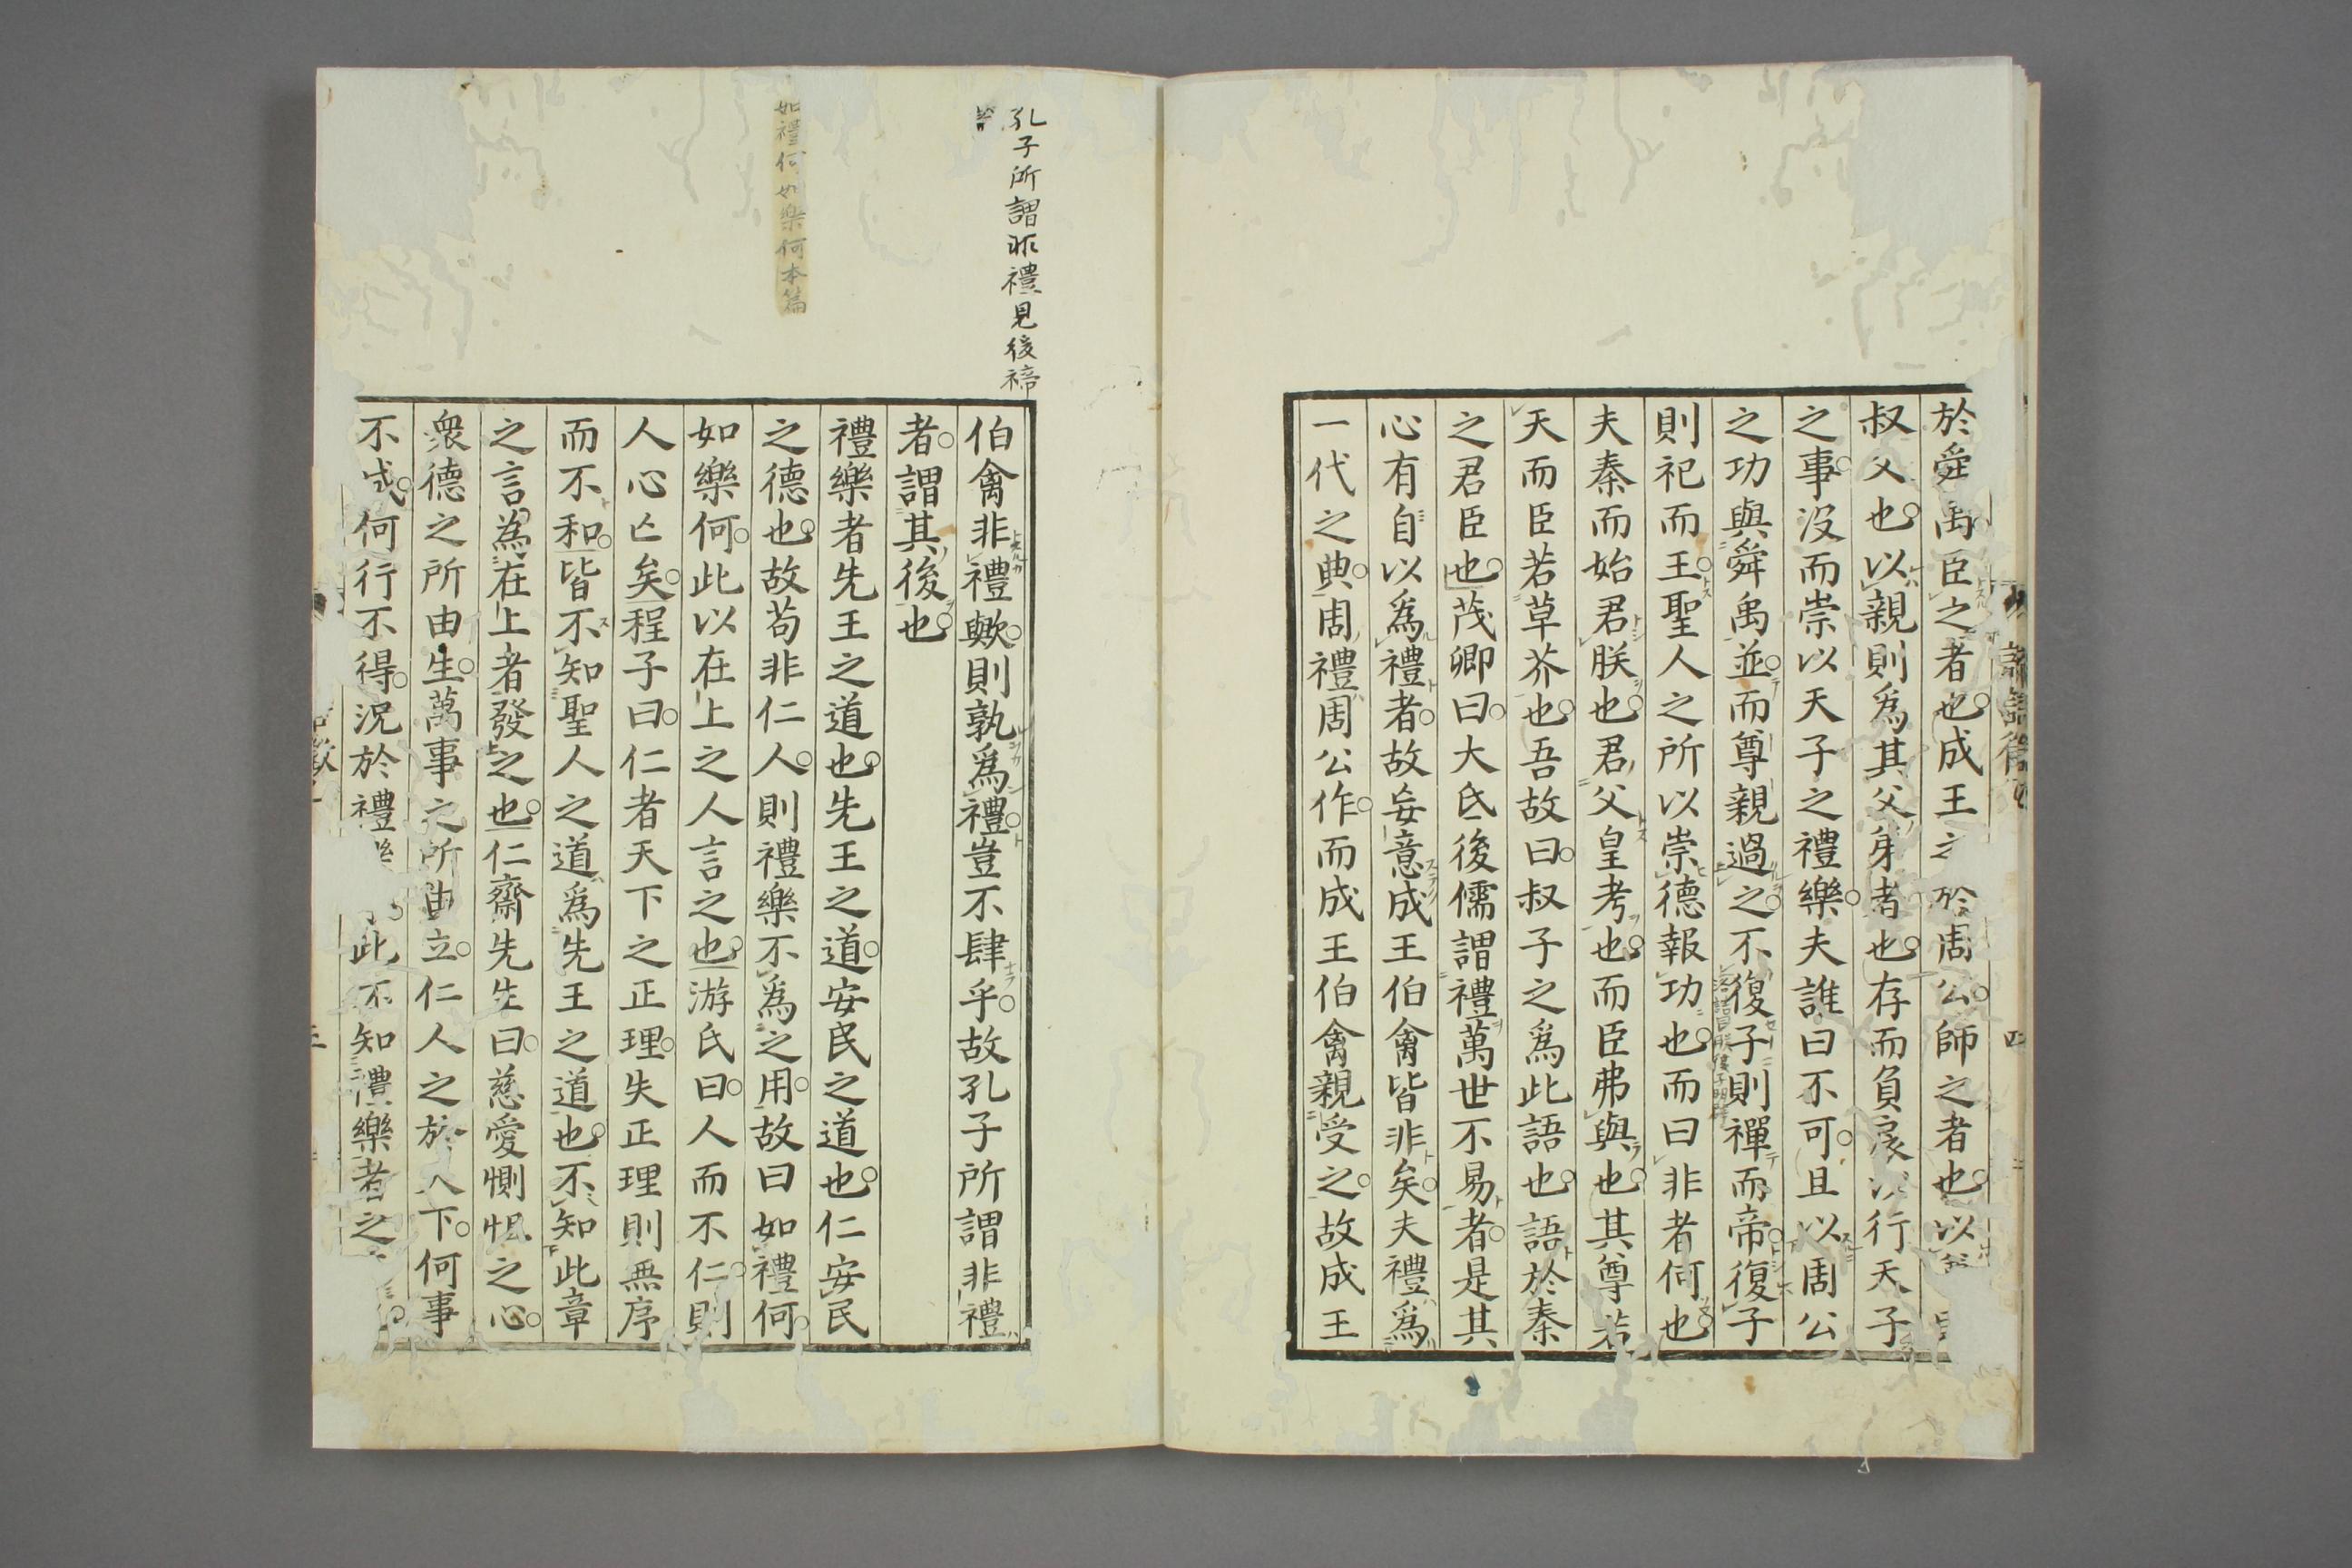 於舜禹臣之者也成王之於周公師之者也以
叔父也以親則爲其父弟者也存而負扆以行天子
之事沒而崇以天子之禮樂夫誰曰不可且以周公
之功與舜禹並而尊親過之不復子則禪而帝復子
則祀而王聖人之所以崇德報功也而曰非者何也
夫秦而始君朕也君父皇考也而臣弗與也其尊若
天而臣若草芥也吾故曰叔子之爲此語也語於秦
之君臣也茂卿曰大氐後儒謂禮萬世不易者是其
心有自以爲禮者故妄意成王伯禽皆非矣夫禮爲
一代之典周禮周公作而成王伯禽親受之故成王
孔子所謂非禮見後禘
伯禽非禮歟則孰爲禮豈不肆乎故孔子所謂非禮
者謂其後也
禮樂者先王之道也先王之道安民之道也仁安民
如禮何如樂何本篇
之德也故苟非仁人則禮樂不爲之用故曰如禮何
如樂何此以在上之人言之也游氏曰人而不仁則
人心亡矣程子曰仁者天下之正理失正理則無序
而不和皆不知聖人之道爲先王之道也不知此章
之言為在上者發之也仁齋先生曰慈愛惻怛之心
衆德之所由生萬事之所由立仁人之於天下何事
不成何行不得況於禮樂此不知禮樂者之